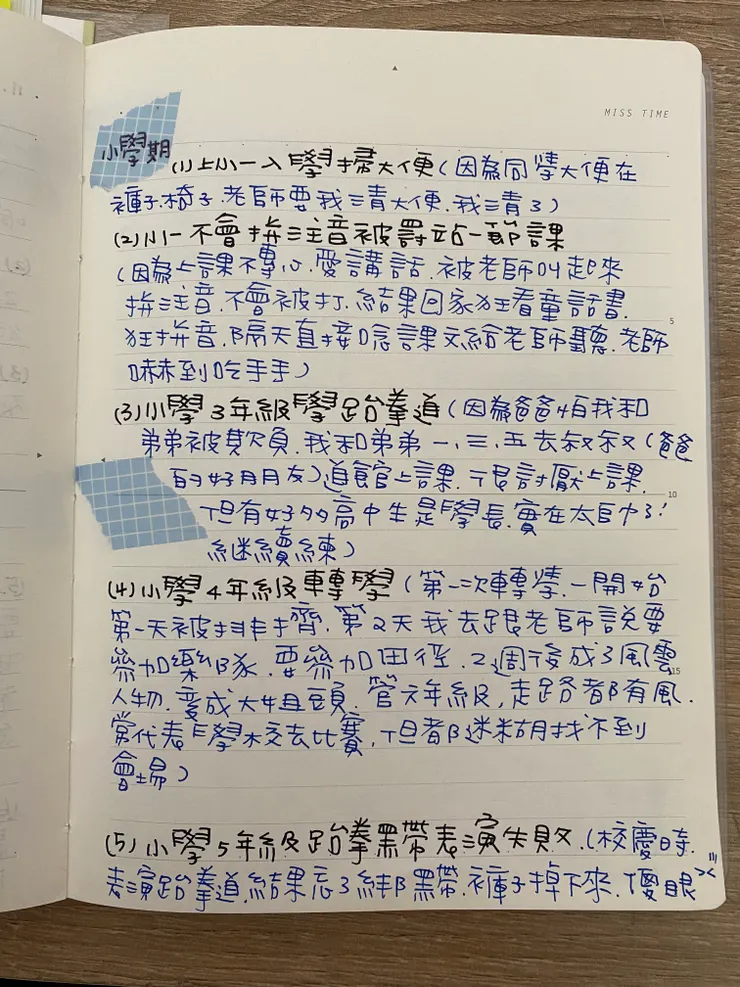 MISS TIME
小學期
(1)上小一入學掃大便(因為同學大便在
褲子、椅子.老師要我清大便.我清了)
(2)小一不會拼注音被罰站一節課
(因為上課不專心.愛講話.被老師叫起來
拼注音.不會被打.結果回家狂看童話書.
5
狂拼音.隔天直接唸課文給老師聽.老師
嚇到吃手手)
(3)小學3年級學跆拳道(因為爸爸怕我和
弟弟被欺負.我和弟弟一、三、五去叔叔(爸爸
的好朋友)道館上課.很討厭上課.
10
但有好多高中生是學長.實在太帥了!
繼續練)
(4)小學4年級轉學(第一次轉學.一開始
第一天被排擠.第2天我去跟老師說要
參加樂隊.要參加田徑.2週後成了風雲
15
人物.變成大姐頭.管六年級,走路都有風.
常代表學校去比賽,但都迷糊找不到
會場)
(5)小學5年級跆拳黑帶表演失敗.(校慶時.
表演跆拳道.結果忘了綁黑帶.褲子掉下來.傻眼><